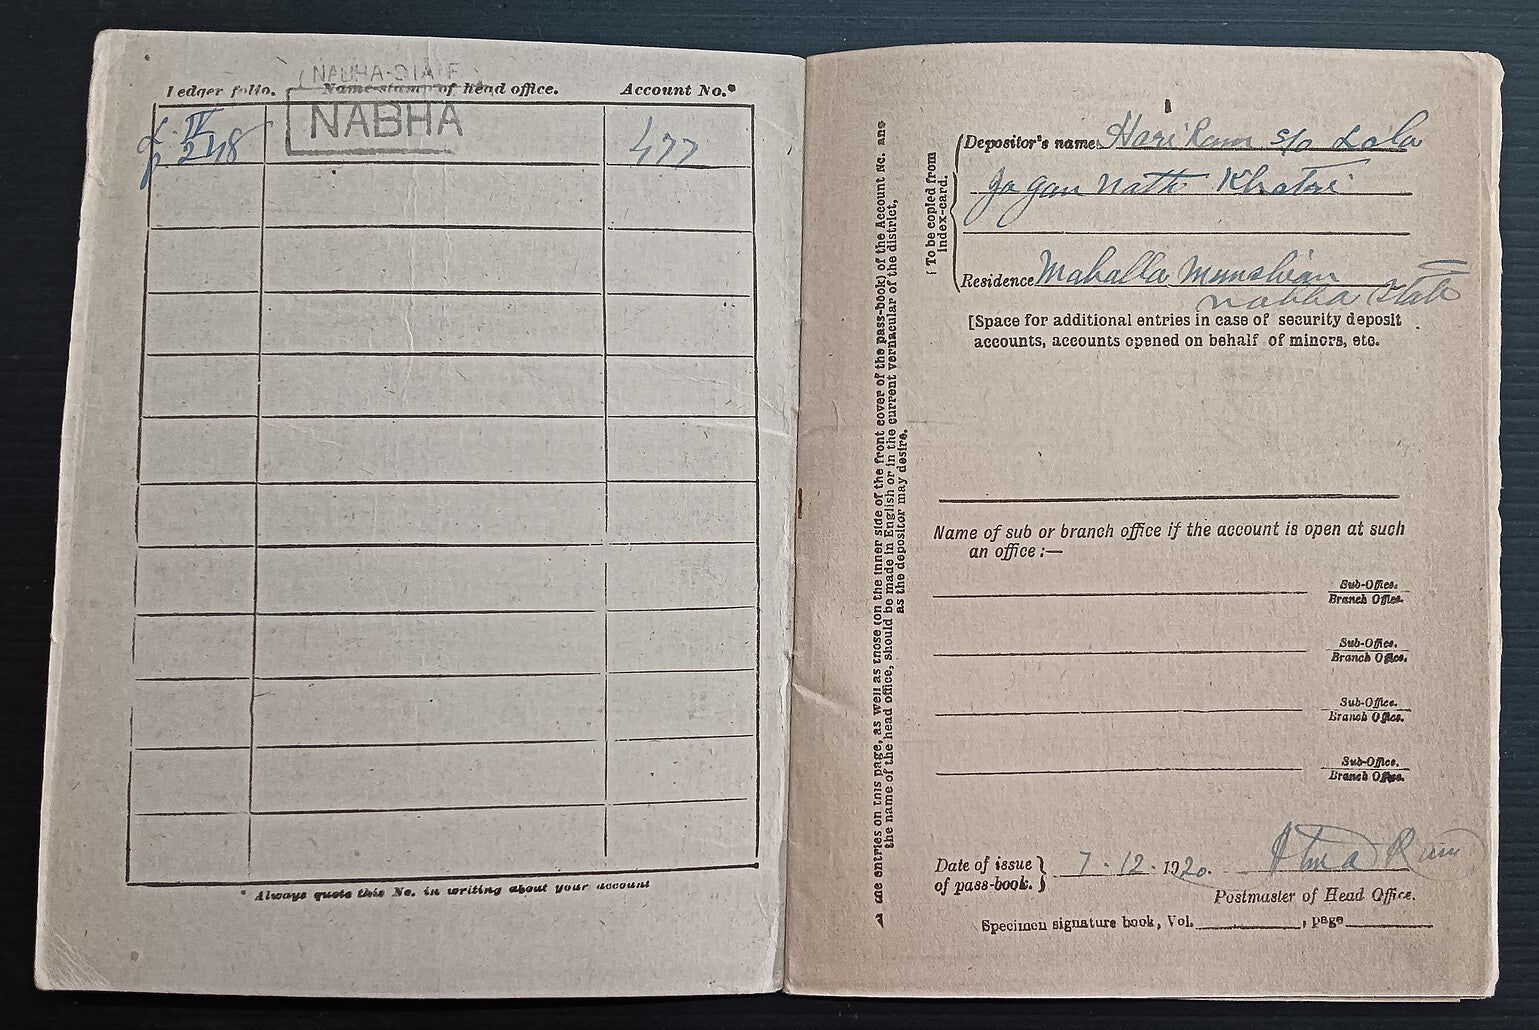 NABHA-STATE
Ledger folio. Name-stamp of head office. Account No.*
NABHA
L. IV
p 248
477
* Always quote this No. in writing about your account
The entries on this page, as well as those (on the inner side of the front cover of the pass-book) of the Account No. and
the name of the head office, should be made in English or in the current vernacular of the district,
as the depositor may desire.
[To be copied from
index-card.
Depositor's name Hari Ram s/o Lala
Jagan Nath Khatri
Residence Mahalla Munshian
Nabha State
[Space for additional entries in case of security deposit
accounts, accounts opened on behalf of minors, etc.
Name of sub or branch office if the account is open at such
an office :—
Sub-Office.
Branch Office.
Sub-Office.
Branch Office.
Sub-Office.
Branch Office.
Sub-Office.
Branch Office.
Date of issue
of pass-book. } 7-12-1920. Atma Ram
Postmaster of Head Office.
Specimen signature book, Vol. , page